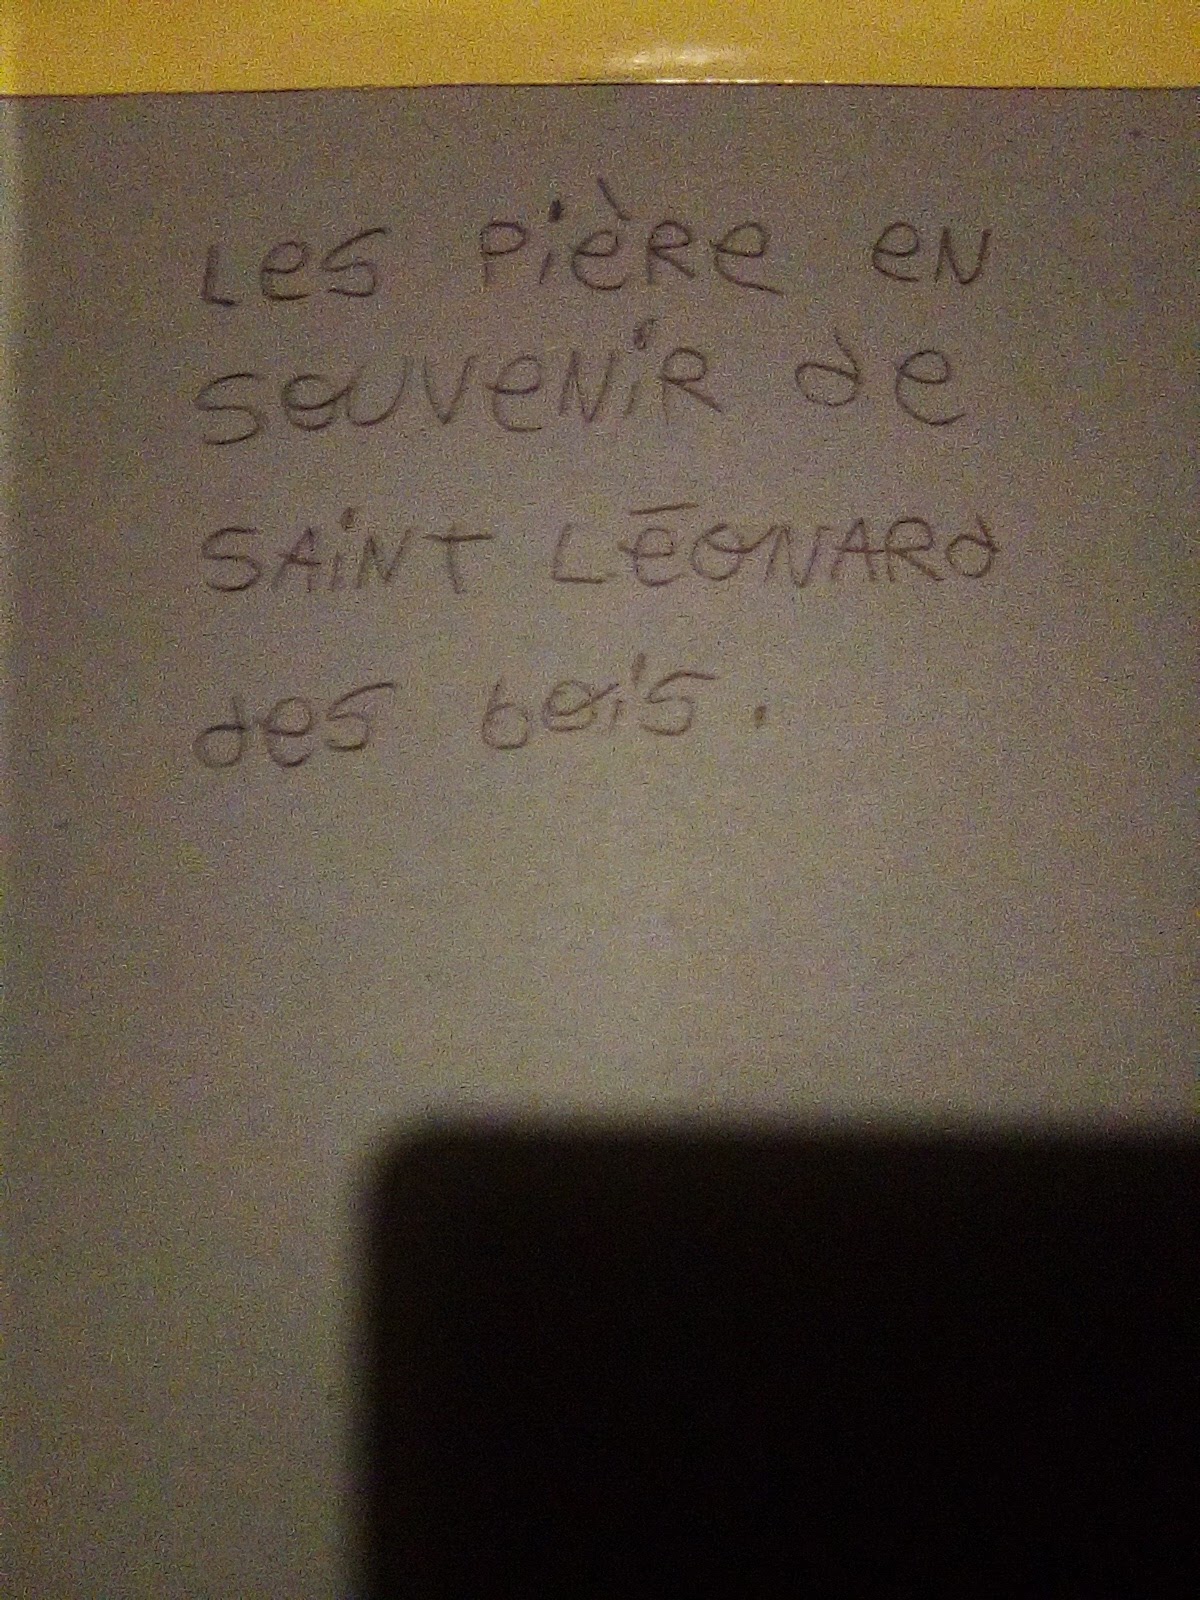 Les pière en
souvenir de
SAINT LÉONARd
des bois.